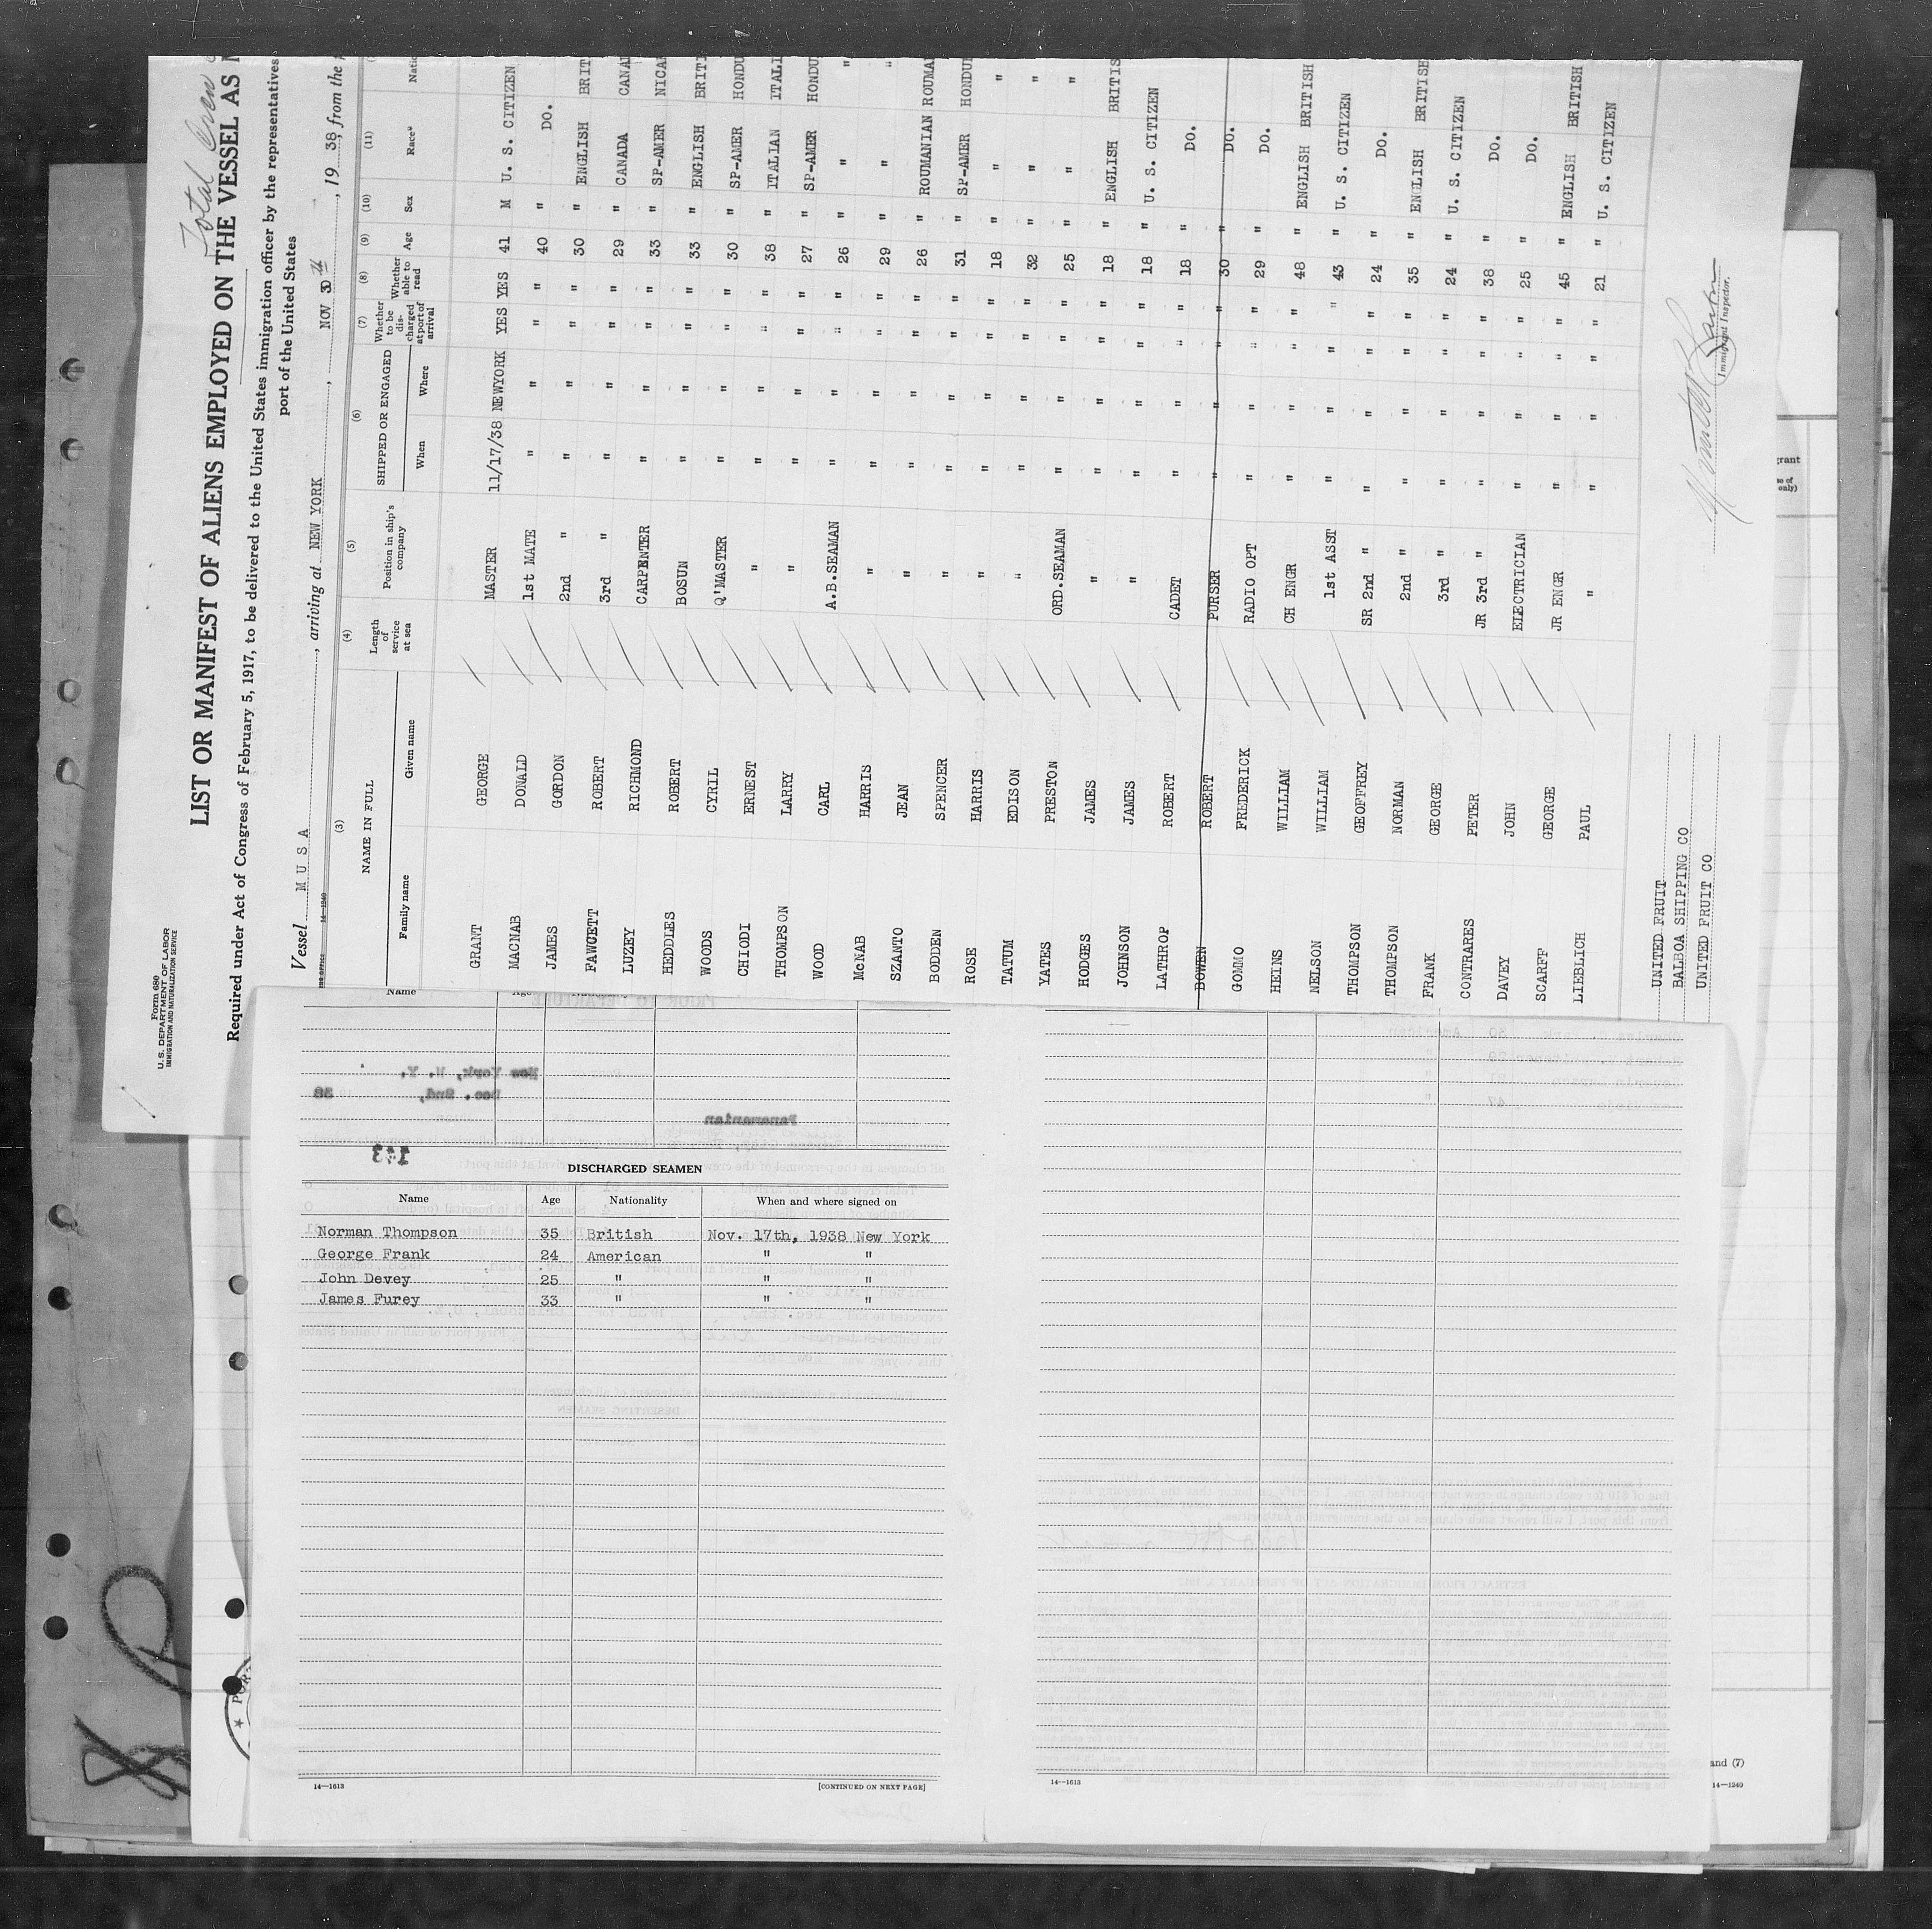 Form 680
U. S. DEPARTMENT OF LABOR
IMMIGRATION AND NATURALIZATION SERVICE
Total Crew
LIST OR MANIFEST OF ALIENS EMPLOYED ON THE VESSEL AS
Required under Act of Congress of February 5, 1917, to be delivered to the United States immigration officer by the representatives
port of the United States
Vessel M U S A, arriving at NEW YORK, NOV 30th, 19 38, from the
14—1240
(3) (4) (5) (6) (7) (8) (9) (10) (11)
NAME IN FULL Length of service at sea Position in ship's company SHIPPED OR ENGAGED Whether to be discharged at port of arrival Whether able to read Age Sex Race*
Family name Given name When Where
GRANT GEORGE MASTER 11/17/38 NEWYORK YES YES 41 M U. S. CITIZEN
MACNAB DONALD 1st MATE " " " " 40 " DO.
JAMES GORDON 2nd " " " " " 30 " ENGLISH BRIT
FAWCETT ROBERT 3rd " " " " " 29 " CANADA CANA
LUZEY RICHMOND CARPENTER " " " " 33 " SP-AMER NICA
HEDDLES ROBERT BOSUN " " " " 33 " ENGLISH BRITI
WOODS CYRIL Q'MASTER " " " " 30 " SP-AMER HONDU
CHIODI ERNEST " " " " " 38 " ITALIAN ITALI
THOMPSON LARRY " " " " " 27 " SP-AMER HONDU
WOOD CARL A.B.SEAMAN " " " " 26 " " "
McNAB HARRIS " " " " " 29 " " "
SZANTO JEAN " " " " " 26 " ROUMANIAN ROUMA
BODDEN SPENCER " " " " " 31 " SP-AMER HONDU
ROSE HARRIS " " " " " 18 " " "
TATUM EDISON " " " " " 32 " " "
YATES PRESTON ORD.SEAMAN " " " " 25 " " "
HODGES JAMES " " " " " 18 " ENGLISH BRITIS
JOHNSON JAMES " " " " " 18 " U. S. CITIZEN
LATHROP ROBERT CADET " " " " 18 " DO.
BOWEN ROBERT PURSER " " " " 30 " DO.
GOMMO FREDERICK RADIO OPT " " " " 29 " DO.
HEINS WILLIAM CH ENGR " " " " 48 " ENGLISH BRITISH
NELSON WILLIAM 1st ASST " " " " 43 " U. S. CITIZEN
THOMPSON GEOFFREY SR 2nd " " " " " 24 " DO.
THOMPSON NORMAN 2nd " " " " " 35 " ENGLISH BRITISH
FRANK GEORGE 3rd " " " " " 24 " U. S. CITIZEN
CONTRARES PETER JR 3rd " " " " " 38 " DO.
DAVEY JOHN ELECTRICIAN " " " " 25 " DO.
SCARFF GEORGE JR ENGR " " " " 45 " ENGLISH BRITISH
LIEBLICH PAUL " " " " " 21 " U. S. CITIZEN
UNITED FRUIT
BALBOA SHIPPING CO
UNITED FRUIT CO
Immigrant Inspector.
Name
New York, N. Y.
Dec. 2nd, 38
Panamanian
143
DISCHARGED SEAMEN
Name Age Nationality When and where signed on
Norman Thompson 35 British Nov. 17th, 1938 New York
George Frank 24 American " "
John Devey 25 " " "
James Furey 33 " " "
14—1613 [CONTINUED ON NEXT PAGE]
14—1613
and (7)
14—1240